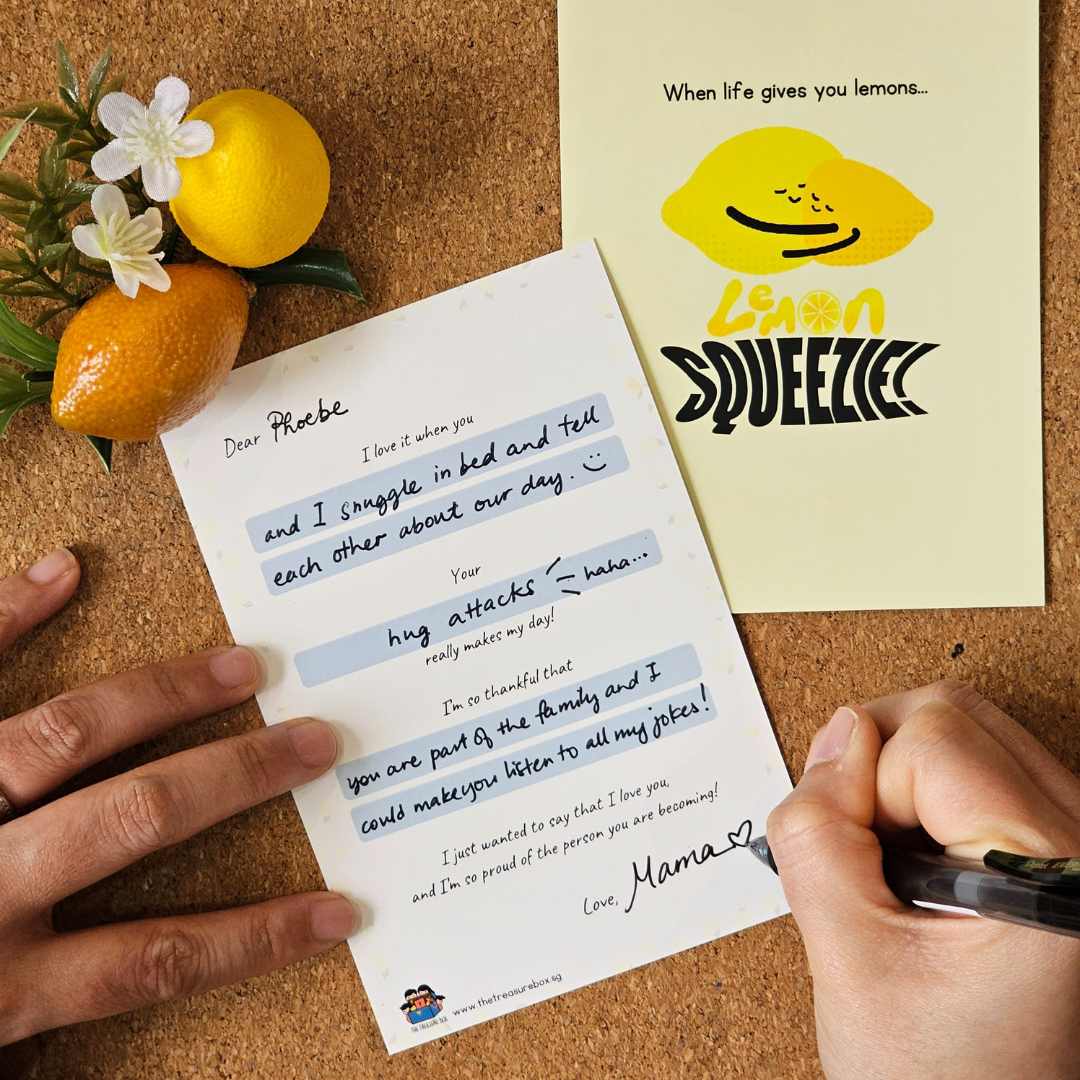 When life gives you lemons...
LeMON
SQUEEZIE!
Dear Phoebe
I love it when you
and I snuggle in bed and tell
each other about our day. :)
Your
hug attacks haha...
really makes my day!
I'm so thankful that
you are part of the family and I
could make you listen to all my jokes!
I just wanted to say that I love you,
and I'm so proud of the person you are becoming!
Love, Mama♡
THE TREASURE BOX
www.thetreasurebox.sg